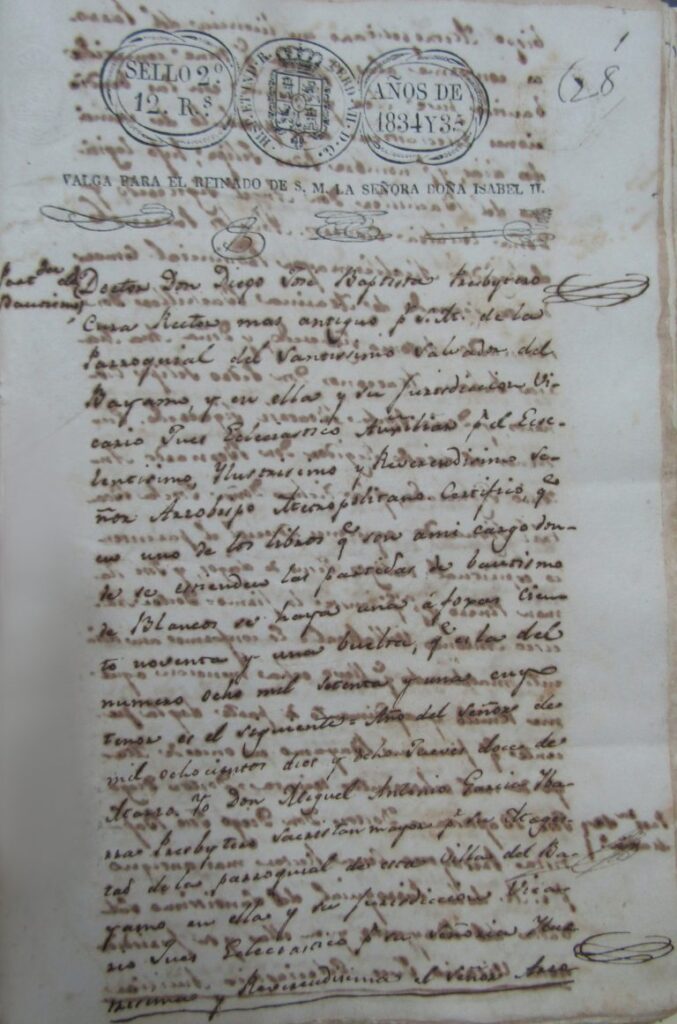 SELLO 2º
12 Rs
HISP. ET IND. R.
AÑOS DE
1834 Y 35
VALGA PARA EL REINADO DE S. M. LA SEÑORA DOÑA ISABEL II.
Doctor Don Diego José Baptista Presbytero
Cura Rector mas antiguo pr S. M. de la
Parroquial del Santissimo Salvador del
Bayamo, y en ella y su jurisdiccion Vi-
cario Jues Eclesiastico Auxiliar pr el Ecse-
lentisimo, Ylustrisimo y Reverendisimo Se-
ñor Arzobispo Metropolitano. Certifico, qe
en uno de los libros qe son ami cargo don-
de se estienden las partidas de bautismo
de Blancos se haya una á foxas Cien-
to noventa y una buelta, qe es la del
numero ocho mil setenta y una cuyo
tenor es el siguiente. Año del Señor de
mil ochocientos dies y ocho Jueves doce de
Marzo Yo don Miguel Antonio Garcia Yba-
rra Presbytero Sacristan mayor pr su Mages-
tad de la parroquial de esta Villa del Ba-
yamo en ella y su jurisdiccion Vica-
rio Jues Eclesiastico pr su Señoria Ylus-
trisima y Reverendisima el Señor Arzo